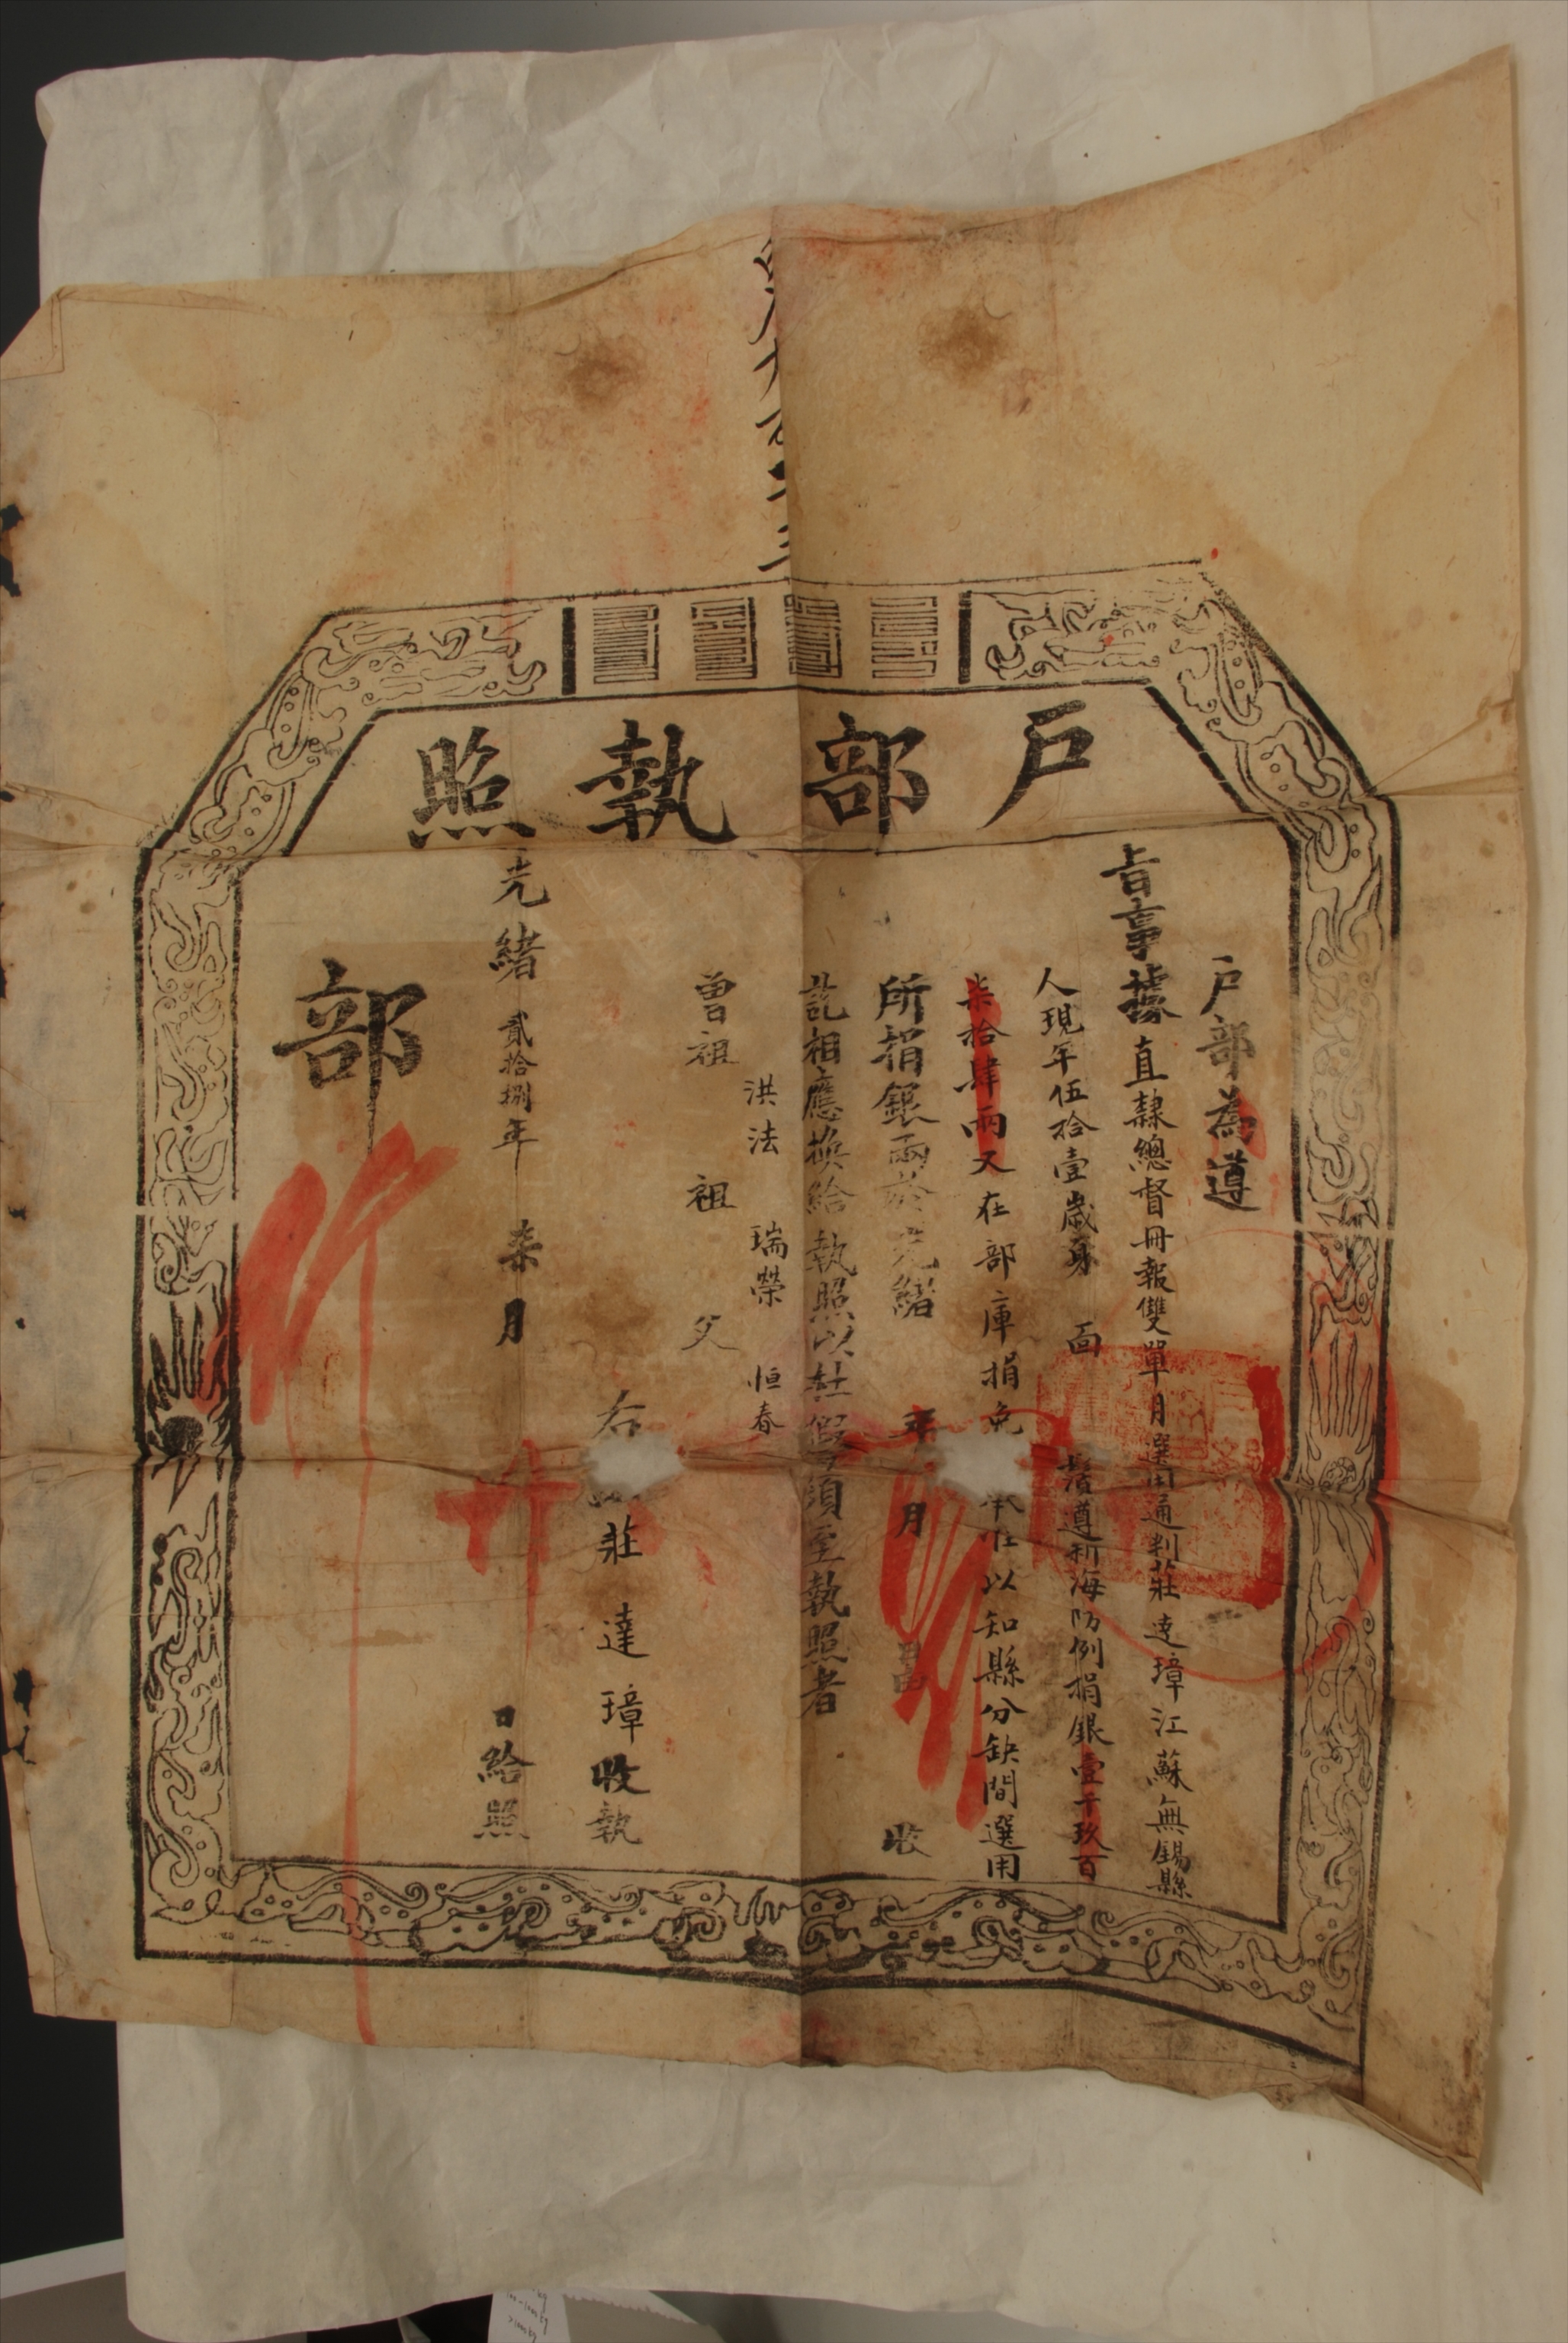 戶部執照
戶部為遵
旨事據直隸總督冊報雙單月選用通判莊達璋江蘇無錫縣
人現年伍拾壹歲身 面 鬚遵新海防例捐銀壹千玖百
柒拾肆兩又在部庫捐免 以知縣分缺間選用
所捐銀兩於光緒 年 月 日 收
訖相應換給執照以杜假 須至執照者
洪法 瑞榮 恒春
曾祖 祖 父
右 莊達璋收執
光緒貳拾捌年 柒月 廿 日給照
部
行